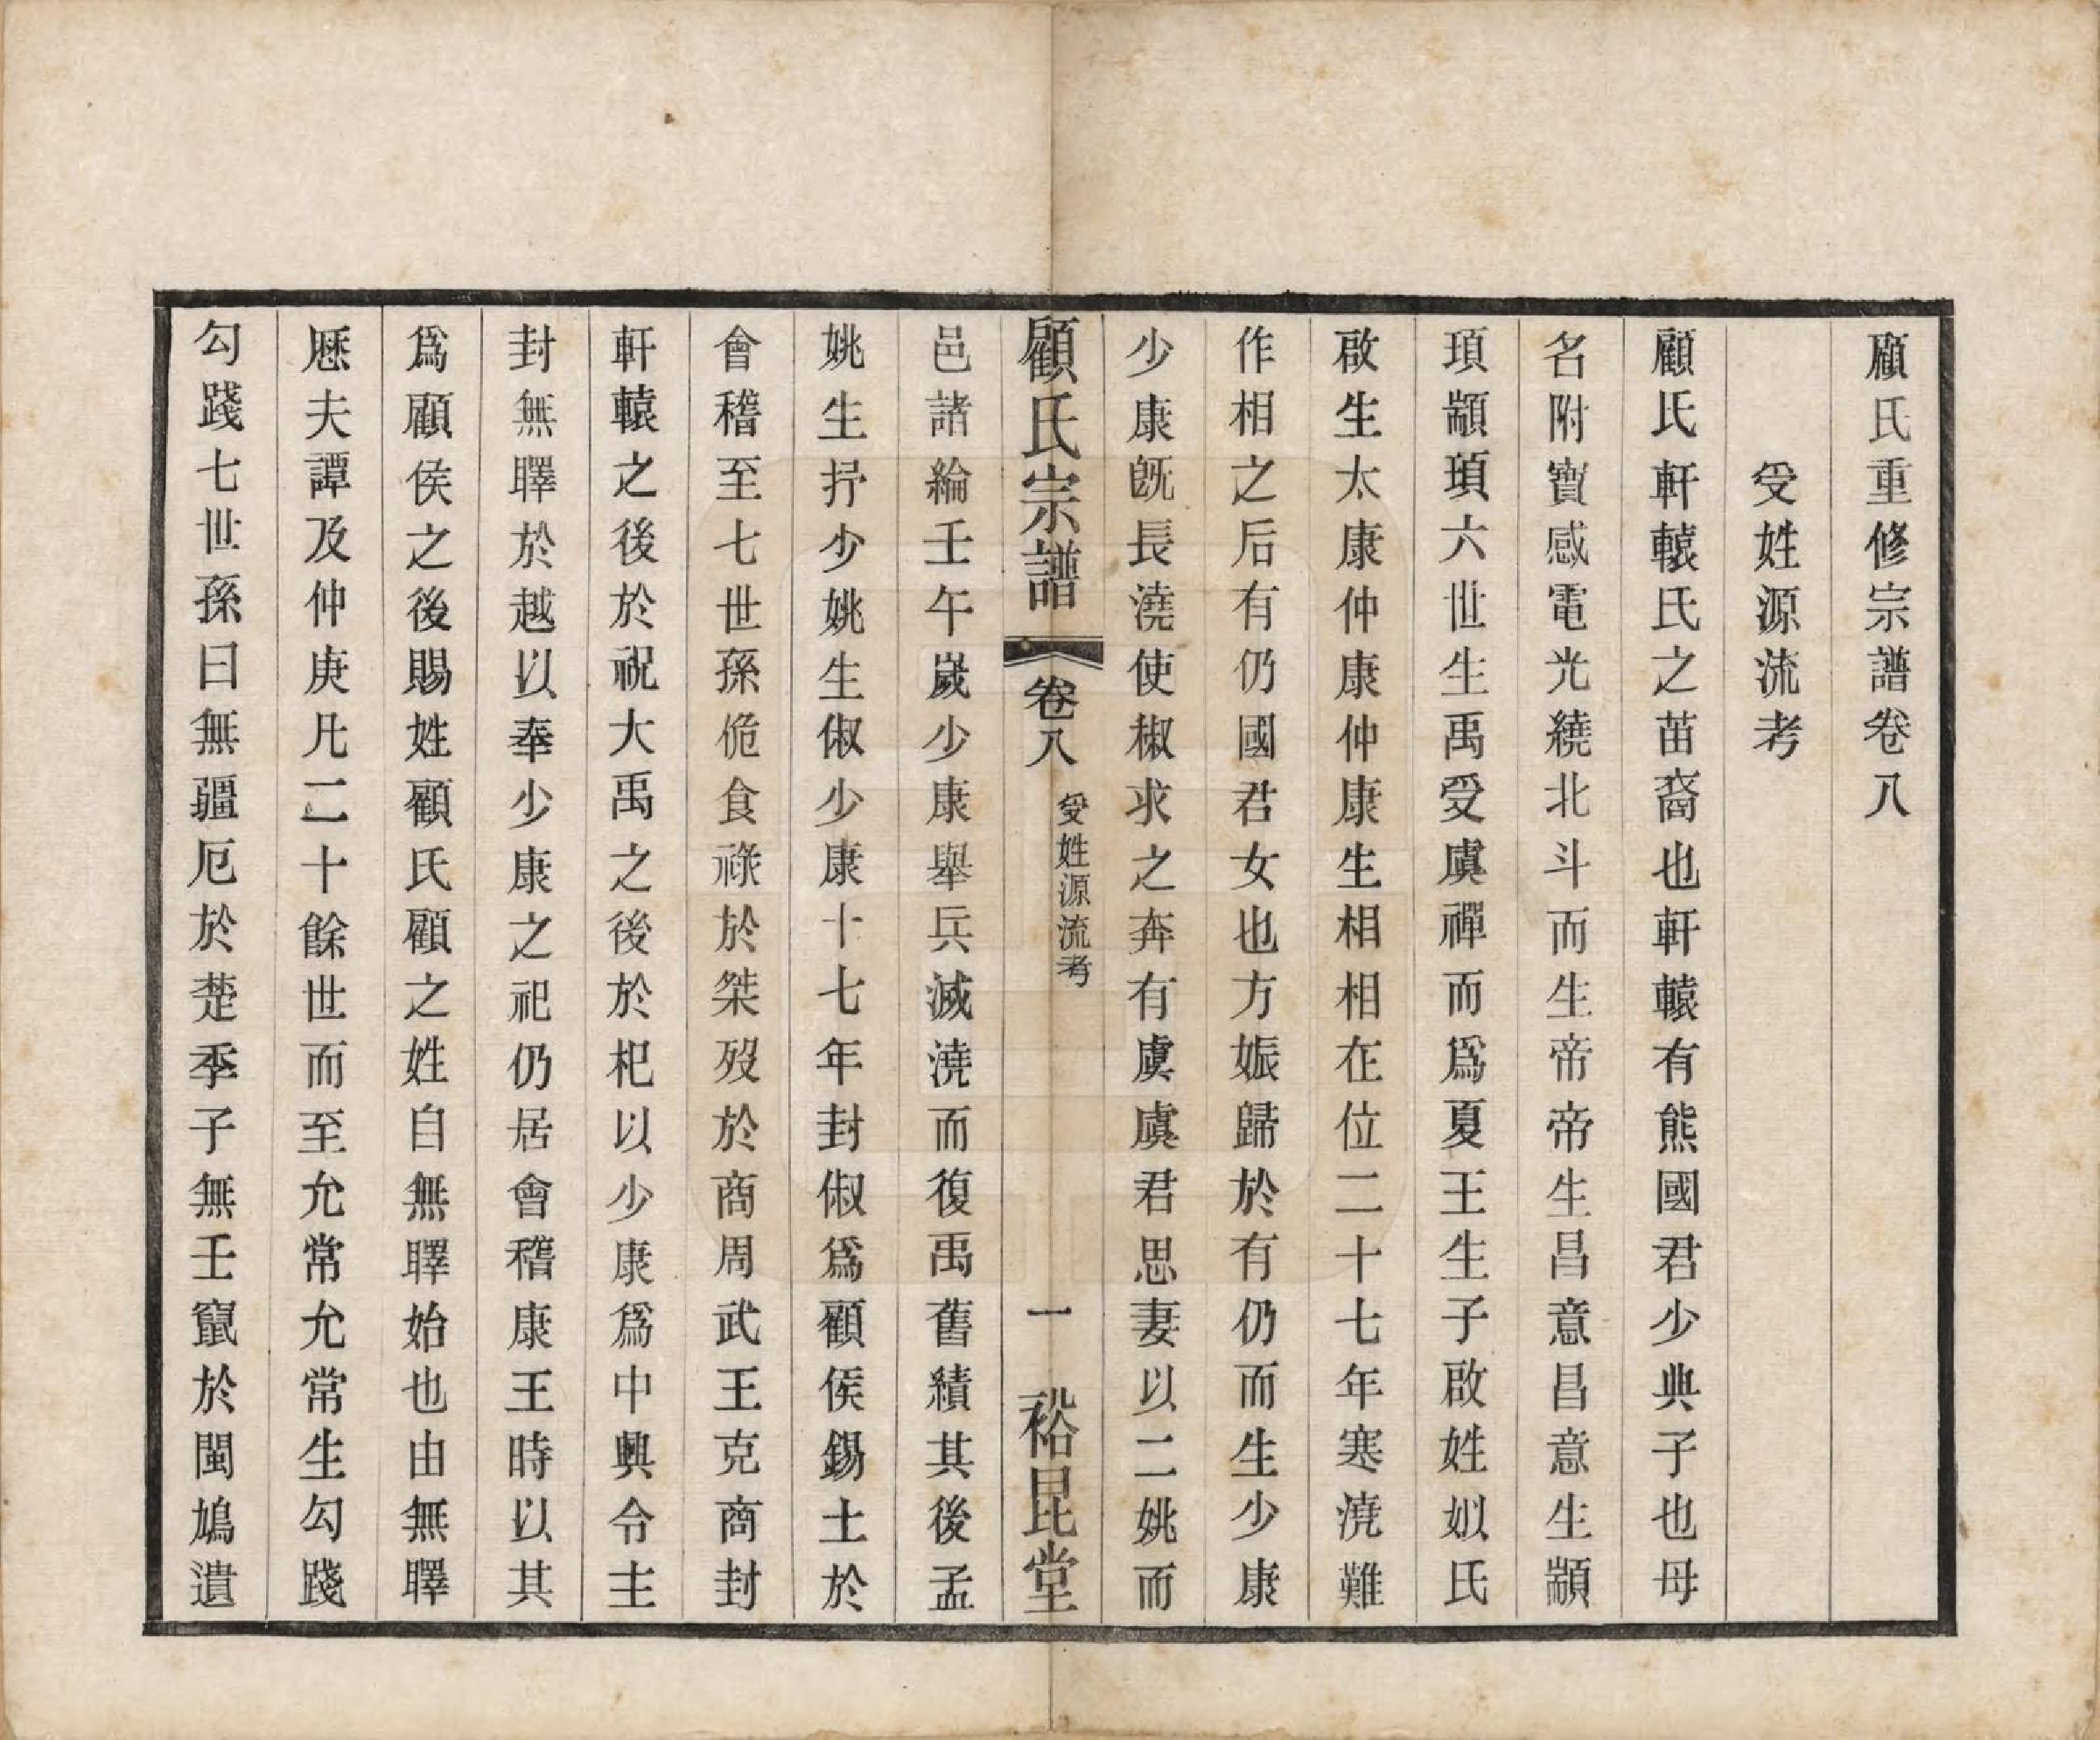 顧氏重修宗譜卷八
受姓源流考
顧氏軒轅氏之苗裔也軒轅有熊國君少典子也母
名附寶感電光繞北斗而生帝帝生昌意昌意生顓
頊顓頊六世生禹受虞禪而爲夏王生子啟姓姒氏
啟生太康仲康仲康生相相在位二十七年寒澆難
作相之后有仍國君女也方娠歸於有仍而生少康
少康既長澆使椒求之奔有虞虞君思妻以二姚而
顧氏宗譜 卷八 受姓源流考 一 裕昆堂
邑諸綸壬午嵗少康舉兵滅澆而復禹舊績其後孟
姚生抒少姚生俶少康十七年封俶爲顧侯錫土於
會稽至七世孫佹食祿於桀歿於商周武王克商封
軒轅之後於祝大禹之後於杞以少康爲中興令主
封無䁺於越以奉少康之祀仍居會稽康王時以其
爲顧侯之後賜姓顧氏顧之姓自無䁺始也由無䁺
歷夫譚及仲庚凡二十餘世而至允常允常生勾踐
勾踐七世孫曰無疆厄於楚季子無壬竄於閩鳩遺